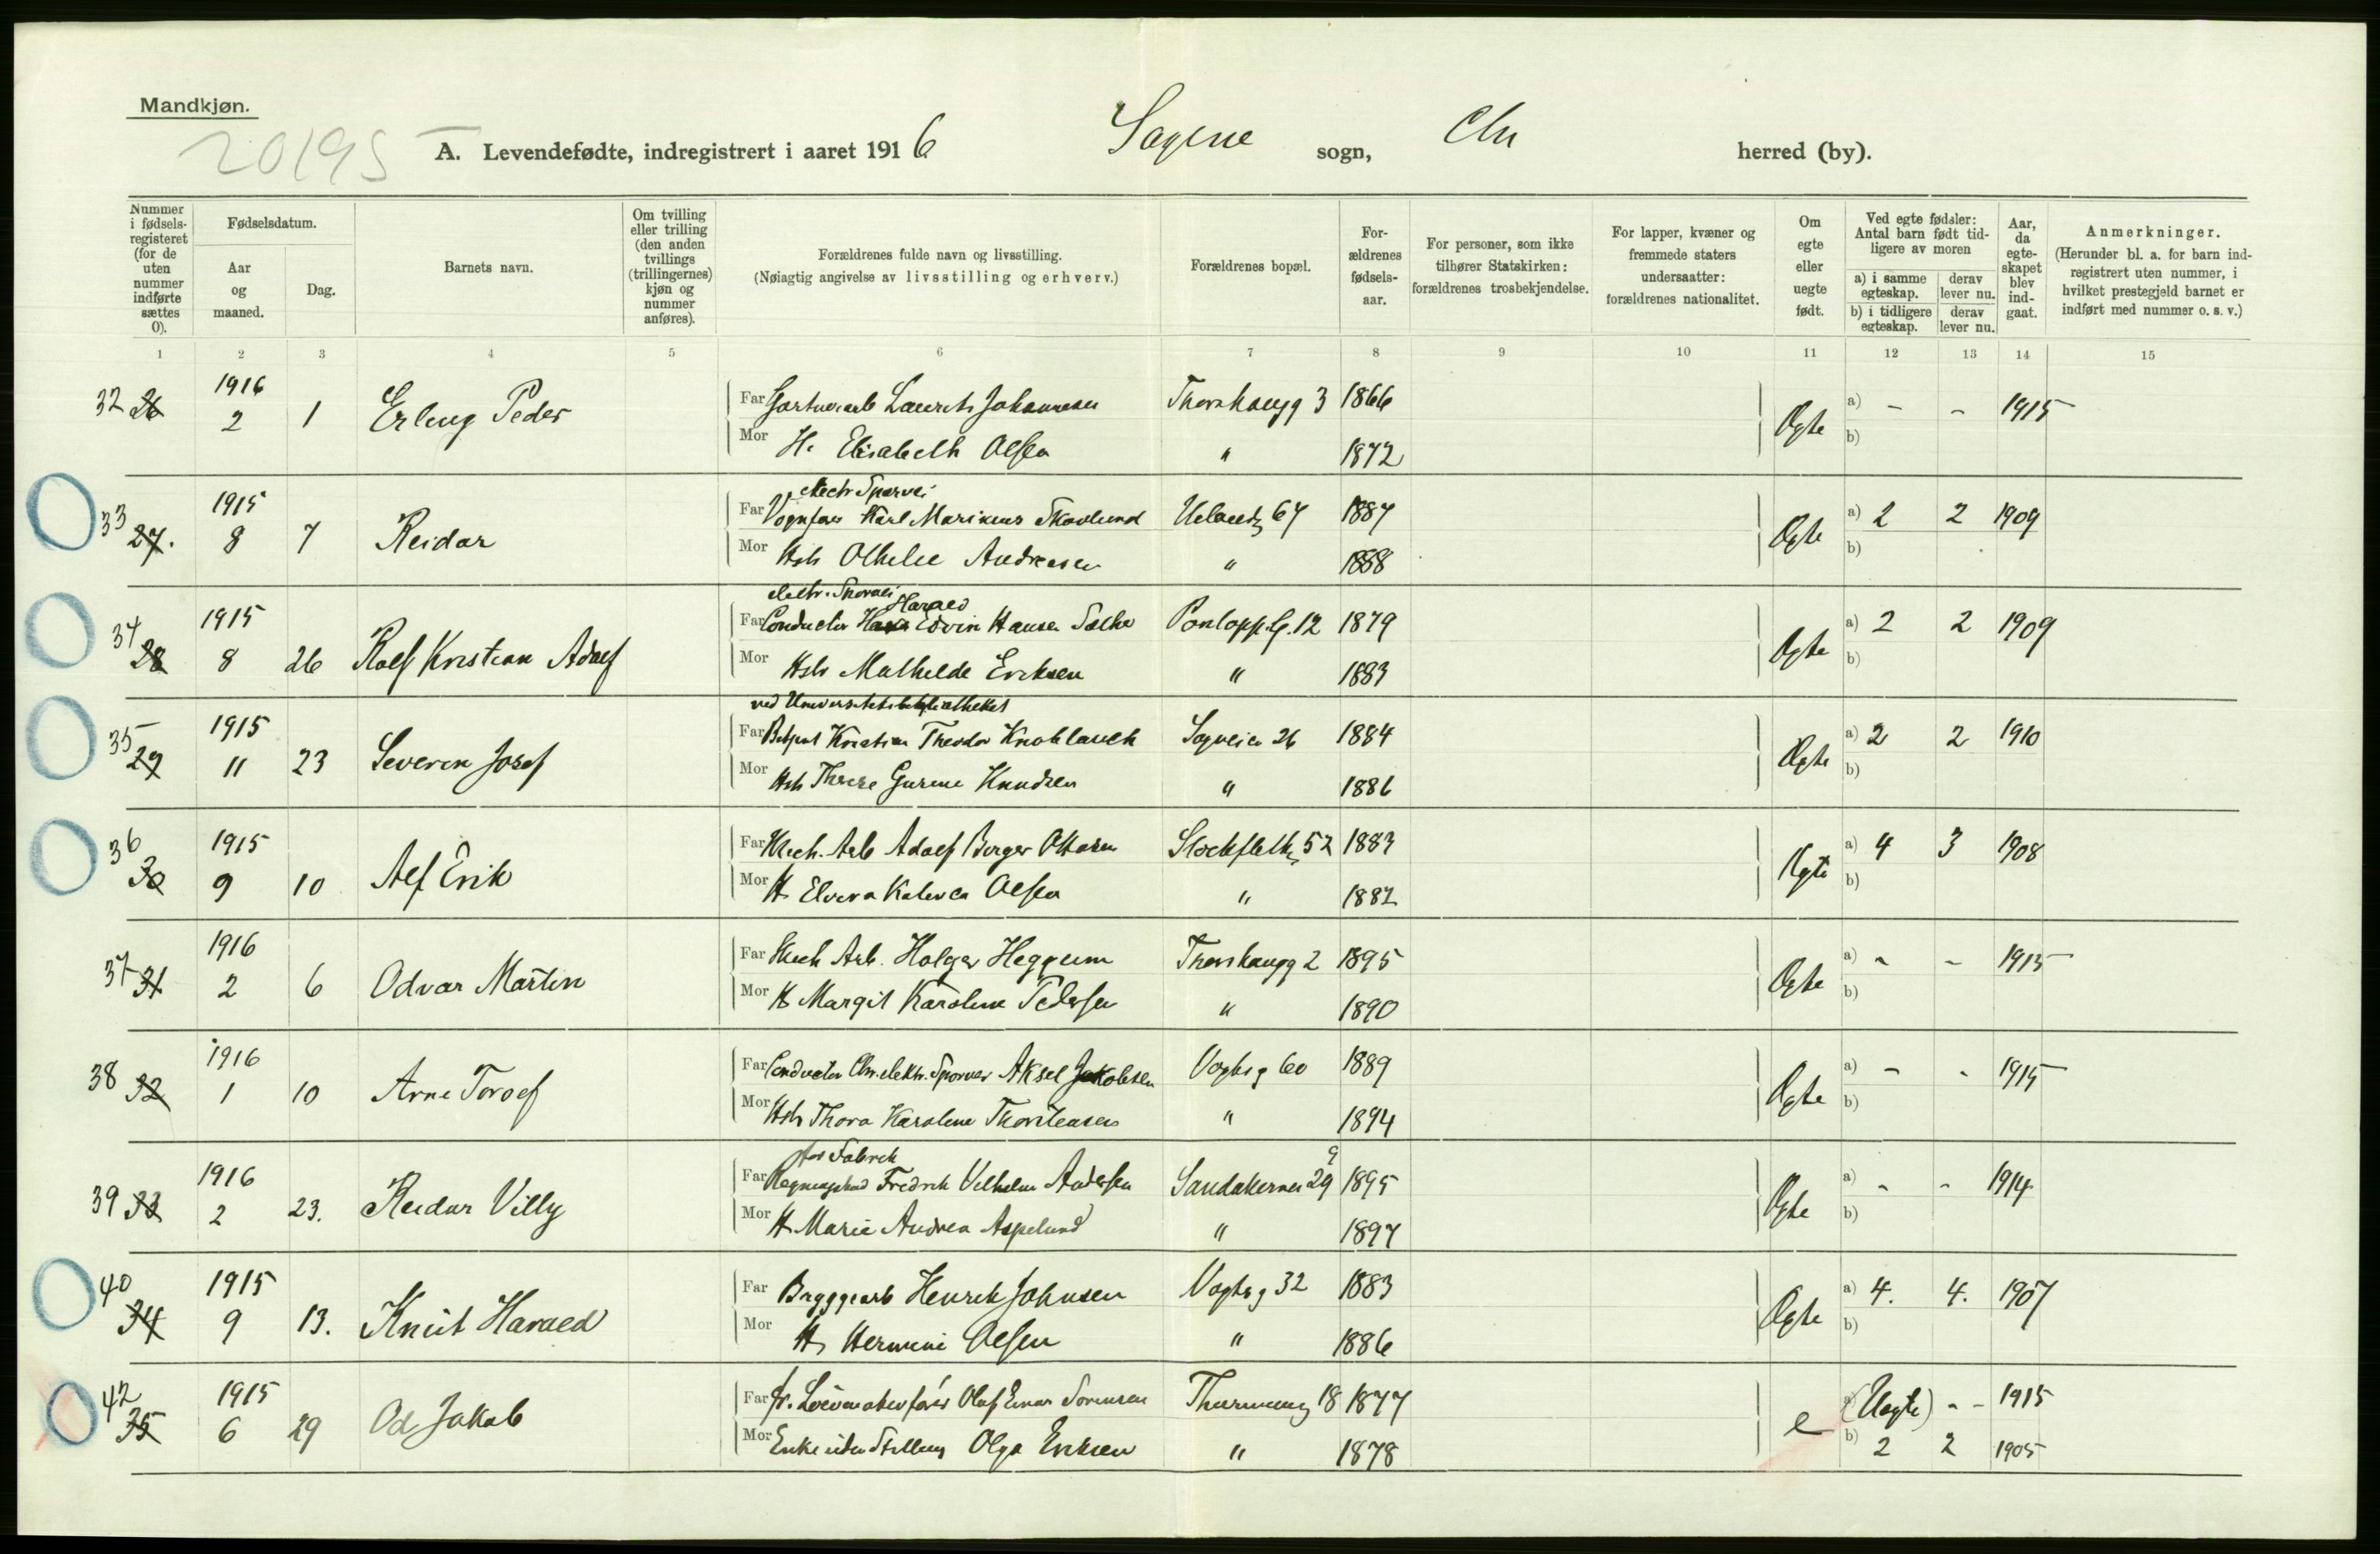 Mandkjøn.
20195
A. Levendefødte, indregistrert i aaret 1916 Sagene sogn, Chr herred (by).
Nummer i fødselsregisteret (for de uten nummer indførte sættes 0).
Fødselsdatum.
Aar og maaned.
Dag.
Barnets navn.
Om tvilling eller trilling (den anden tvillings (trillingernes) kjøn og nummer anføres).
Forældrenes fulde navn og livsstilling.
(Nøiagtig angivelse av livsstilling og erhverv.)
Forældrenes bopæl.
Forældrenes fødselsaar.
For personer, som ikke tilhører Statskirken: forældrenes trosbekjendelse.
For lapper, kvæner og fremmede staters undersaatter: forældrenes nationalitet.
Om egte eller uegte født.
Ved egte fødsler: Antal barn født tidligere av moren
a) i samme egteskap.
derav lever nu.
b) i tidligere egteskap.
derav lever nu.
Aar, da egteskapet blev indgaat.
Anmerkninger.
(Herunder bl. a. for barn indregistrert uten nummer, i hvilket prestegjeld barnet er indført med nummer o. s. v.)
1 2 3 4 5 6 7 8 9 10 11 12 13 14 15
32 26 1916 2 1 Erling Peder Far Gartnerarb Laurits Johannesen Thorshaugg 3 1866 Egte a) - - 1915
Mor H. Elisabeth Olsen " 1872 b)
electr Sporvei
33 27. 1915 8 7 Reidar Far Vognfører Karl Marinius Skovlund Uelandsg 67 1887 Egte a) 2 2 1909
Mor Hstr Othelie Andresen " 1888 b)
electr. Sporvei Harald
34 28 1915 8 26 Rolf Kristian Adolf Far Conductør Hans Edvin Hansen Pontoppg. 12 1879 Egte a) 2 2 1909
Mor Hstr Mathilde Eriksen " 1883 b)
ved Universitetsbibliotheket
35 29 1915 11 23 Severin Josef Far Kristian Theodor Knoblauch Sagveien 26 1884 Egte a) 2 2 1910
Mor Hstr Therese Gurine Knudsen " 1886 b)
36 30 1915 9 10 Alf Erik Far Mech. Arb Adolf Birger Ottosen Stockflethsg 52 1883 Egte a) 4 3 1908
Mor H Elvira Olsen " 1882 b)
37 31 1916 2 6 Odvar Martin Far Mech Arb. Holger Heggum Thorshaugg 2 1895 Egte a) - - 1915
Mor H Margit Karoline Pedersen " 1890 b)
38 32 1916 1 10 Arne Torolf Far Conductør Chr. elektr. Sporvei Aksel Jakobsen Vogtsg 60 1889 Egte a) - - 1915
Mor Hstr Thora Karoline Thorstensen " 1894 b)
for Fabrik 9
39 33 1916 2 23. Reidar Villy Far Fredrik Vilhelm Andersen Sandakerveien 29 1895 Egte a) - - 1914
Mor H Marie Andrea Aspelund " 1897 b)
40 34 1915 9 13. Knut Harald Far Bryggearb Henrik Johnsen Vogtsg 32 1883 Egte a) 4. 4. 1907
Mor H Hermine Olsen " 1886 b)
42 35 1915 6 29 Od Jakob Far Olaf Einar Sørensen 18 1877 e a) (Uegte) - - 1915
Mor Enke uden Stilling Olga Eriksen " 1878 b) 2 2 1905